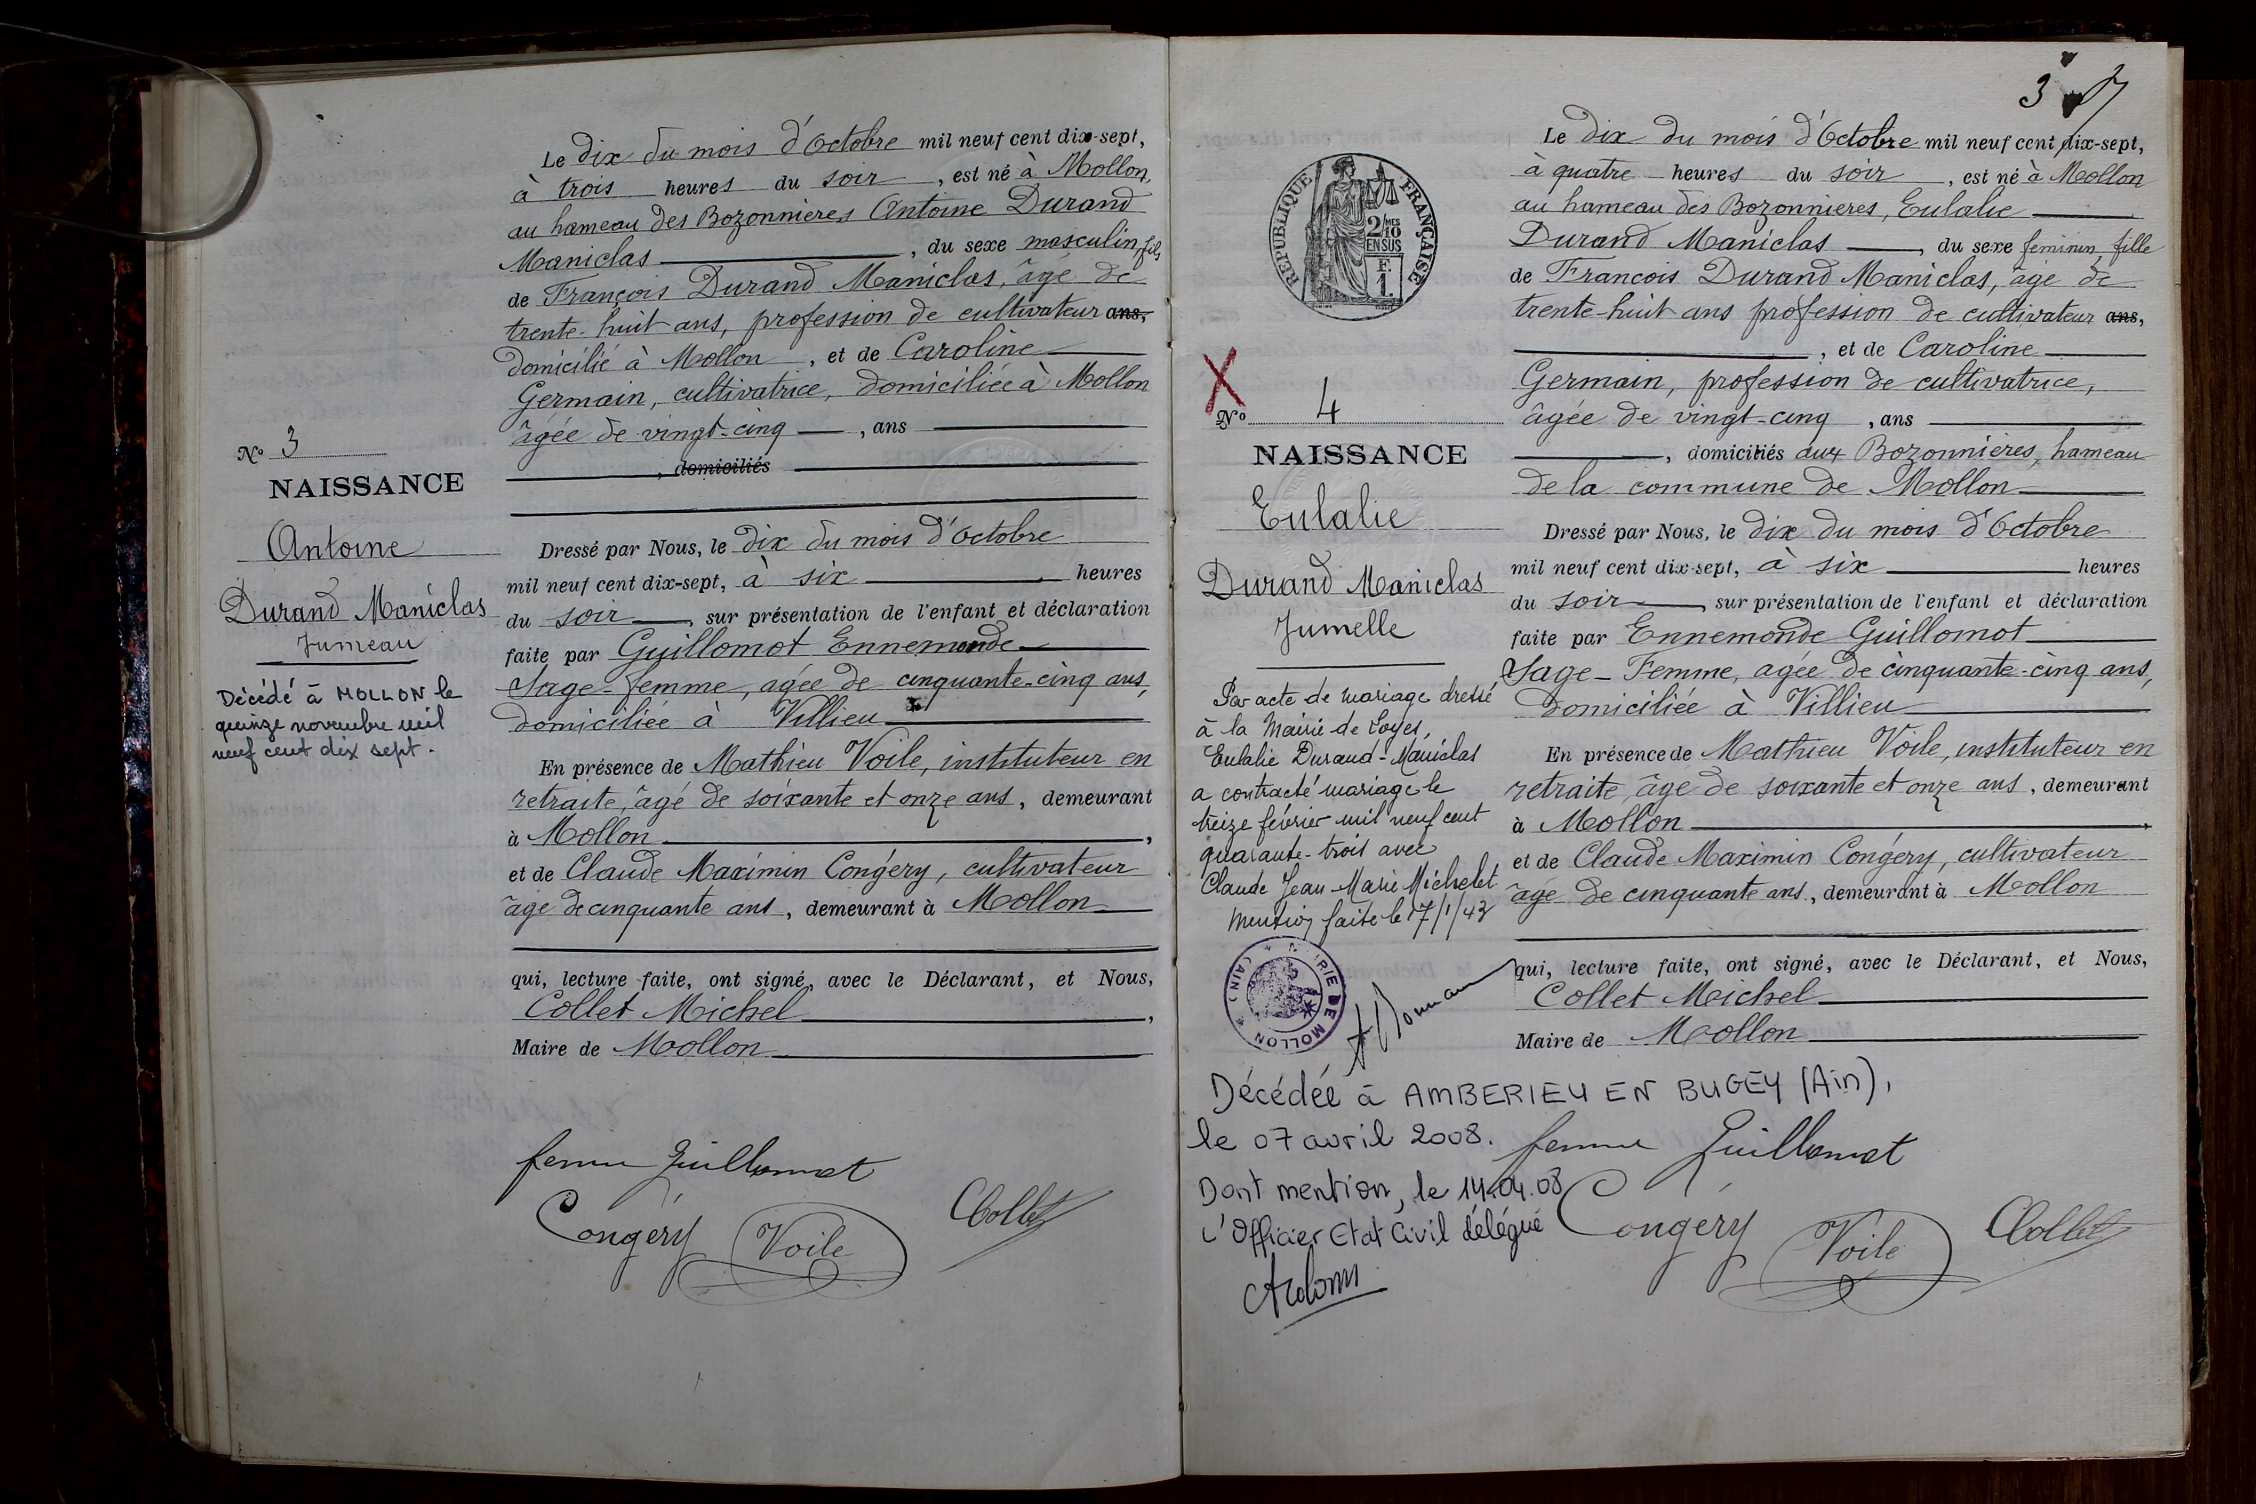 Le dix du mois d'Octobre mil neuf cent dix-sept,
à trois heures du soir, est né à Mollon,
au hameau des Bozonnieres Antoine Durand
Maniclas, du sexe masculin, fils
de François Durand Maniclas, âgé de
trente-huit ans, profession de cultivateur ans,
domicilié à Mollon, et de Caroline
Germain, cultivatrice, domiciliée à Mollon
âgée de vingt-cinq, ans
, domiciliés
Nº 3
NAISSANCE
Antoine
Durand Maniclas
Jumeau
Décédé à MOLLON le
quinze novembre mil
neuf cent dix sept.
Dressé par Nous, le dix du mois d'Octobre
mil neuf cent dix-sept, à six heures
du soir, sur présentation de l'enfant et déclaration
faite par Guillomot Ennemonde
Sage-femme, agée de cinquante-cinq ans,
domiciliée à Villieu
En présence de Mathieu Voile, instituteur en
retraite, âgé de soixante et onze ans, demeurant
à Mollon,
et de Claude Maximin Congéry, cultivateur
âgé de cinquante ans, demeurant à Mollon
qui, lecture faite, ont signé, avec le Déclarant, et Nous,
Collet Michel,
Maire de Mollon
femme Guillomot
Congéry
Voile
Collet
3
RÉPUBLIQUE FRANÇAISE
2/10
MES
EN SUS
F.
1.
Le dix du mois d'Octobre mil neuf cent dix-sept,
à quatre heures du soir, est né à Mollon
au hameau des Bozonnieres, Eulalie
Durand Maniclas, du sexe feminin, fille
de Francois Durand Maniclas, âgé de
trente-huit ans profession de cultivateur ans,
, et de Caroline
Germain, profession de cultivatrice,
âgée de vingt-cinq, ans
, domiciliés aux Bozonnières, hameau
de la commune de Mollon
X
Nº 4
NAISSANCE
Eulalie
Durand Maniclas
Jumelle
Par acte de mariage dressé
à la Mairie de Loyes,
Eulalie Durand-Maniclas
a contracté mariage le
treize février mil neuf cent
quarante-trois avec
Claude Jean Marie Michelet
Mention faite le 17/1/43
MAIRIE DE MOLLON
(AIN)
Dressé par Nous, le dix du mois d'Octobre
mil neuf cent dix-sept, à six heures
du soir, sur présentation de l'enfant et déclaration
faite par Ennemonde Guillomot
Sage-Femme, agée de cinquante-cinq ans,
domiciliée à Villieu
En présence de Mathieu Voile, instituteur en
retraite, âgé de soixante et onze ans, demeurant
à Mollon,
et de Claude Maximin Congéry, cultivateur
âgé de cinquante ans, demeurant à Mollon
qui, lecture faite, ont signé, avec le Déclarant, et Nous,
Collet Michel
Maire de Mollon
Décédée à AMBERIEU EN BUGEY (Ain),
le 07 avril 2008.
Dont mention, le 14.04.08
L'Officier Etat Civil délégué
femme Guillomot
Congéry
Voile
Collet